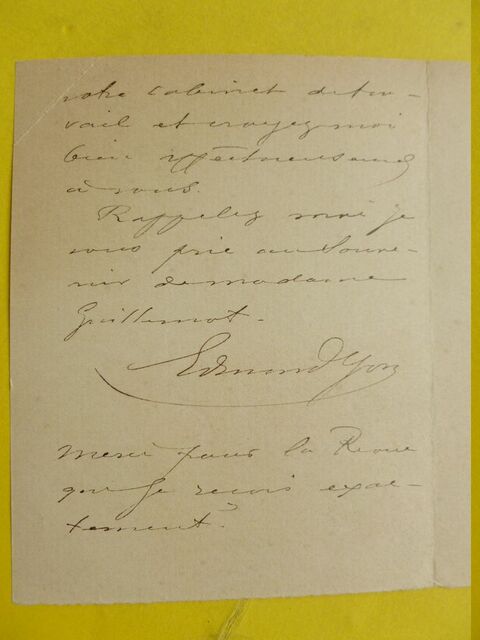 votre cabinet de tra-
vail et croyez moi
bien affectueusement
à vous.
Rappelez moi je
vous prie au souve-
nir de madame
Guillemot.
Edmond Yon
merci pour la Revue
que je reçois exac-
tement.